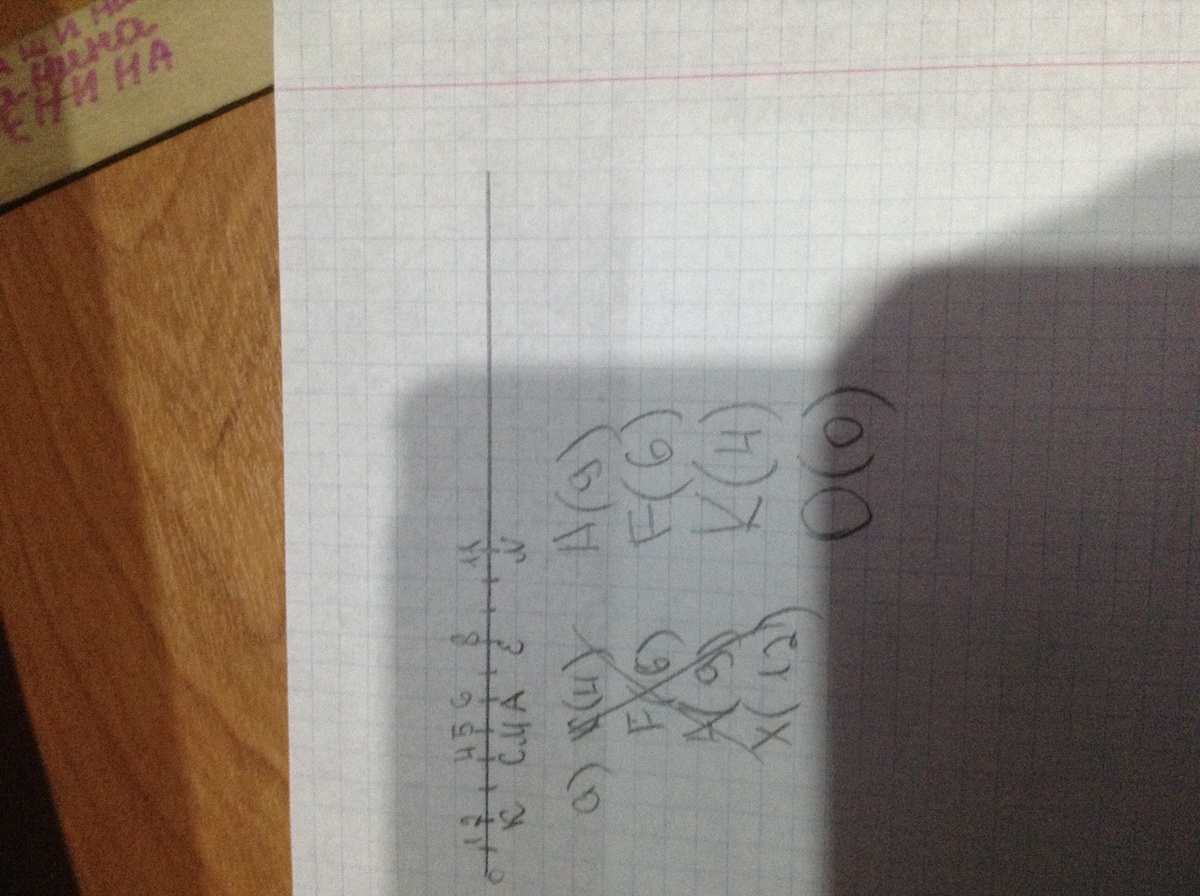 ЕНИНА
0 1 2 4 5 6 8 11
К С А Е N
а) К(4) A(9)
F(6) F(6)
A(9) K(4)
X(12) O(0)